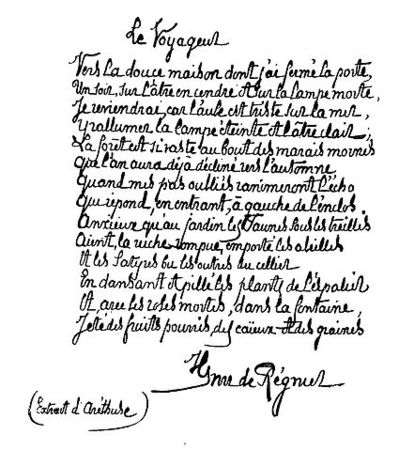 Le Voyageur
Vers la douce maison dont j'ai fermé la porte,
Un soir, sur l'âtre en cendre et sur la lampe morte,
Je reviendrai, car l'aube est triste sur la mer,
Y rallumer la lampe éteinte et l'âtre clair,
La forêt est si vaste au bout des marais mornes
que l'an aura déjà décliné vers l'automne
Quand mes pas oubliés ranimeront l'écho
Qui répond, en entrant, à gauche de l'enclos.
Anxieux qu'au jardin les Faunes sous les treilles
Aient, la ruche rompue, emporté les abeilles
Et les Satyres bu les outres du cellier
En dansant et pillé les plants de l'espalier
Et, avec les roses mortes, dans la fontaine,
Jeté des fruits pourris, des caïeux et des graines
Henri de Régnier
(Extrait d'Aréthuse)